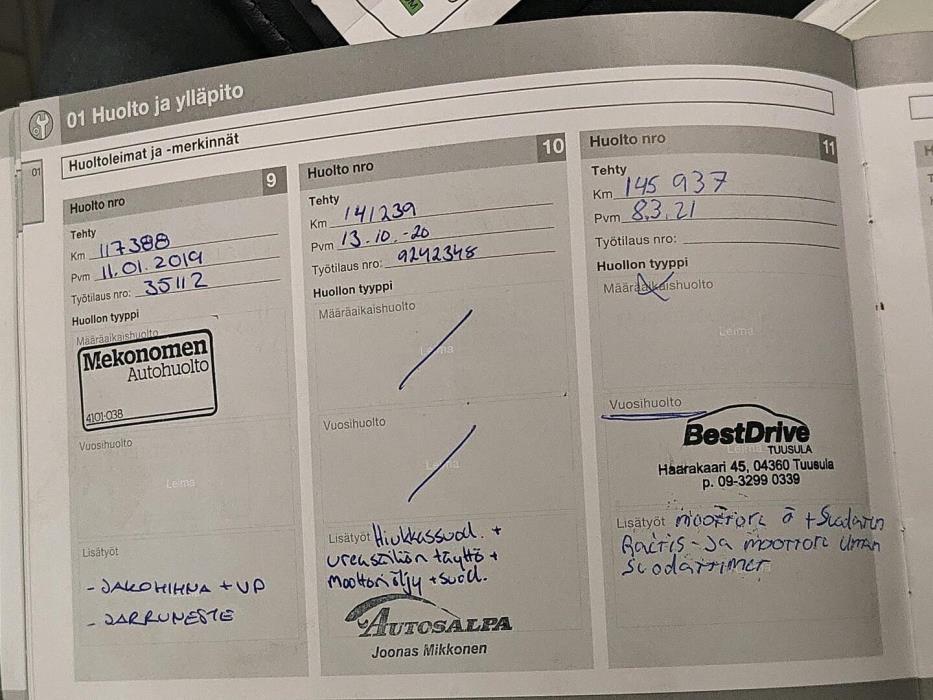 01 Huolto ja ylläpito
Huoltoleimat ja -merkinnät
01
Huolto nro 9
Tehty
Km 117388
Pvm 11.01.2019
Työtilaus nro: 35112
Huollon tyyppi
Määräaikaishuolto
Mekonomen
Autohuolto
4101-038
Vuosihuolto
Leima
Lisätyöt
- JAKOHIHNA + VP
- JARRUNESTE
Huolto nro 10
Tehty
Km 141239
Pvm 13.10.-20
Työtilaus nro: 9242348
Huollon tyyppi
Määräaikaishuolto
Leima
Vuosihuolto
Leima
Lisätyöt Hiukkassuod. +
ureasäiliön täyttö +
Moottoriöljy + suod.
AUTOSALPA
Joonas Mikkonen
Huolto nro 11
Tehty
Km 145 937
Pvm 8.3.21
Työtilaus nro:
Huollon tyyppi
Määräaikaishuolto
Leima
Vuosihuolto
BestDrive
Leima TUUSULA
Haarakaari 45, 04360 Tuusula
p. 09-3299 0339
Lisätyöt moottori ö + Suodatin
Raitis- Ja moottori ilman
Suodattimet